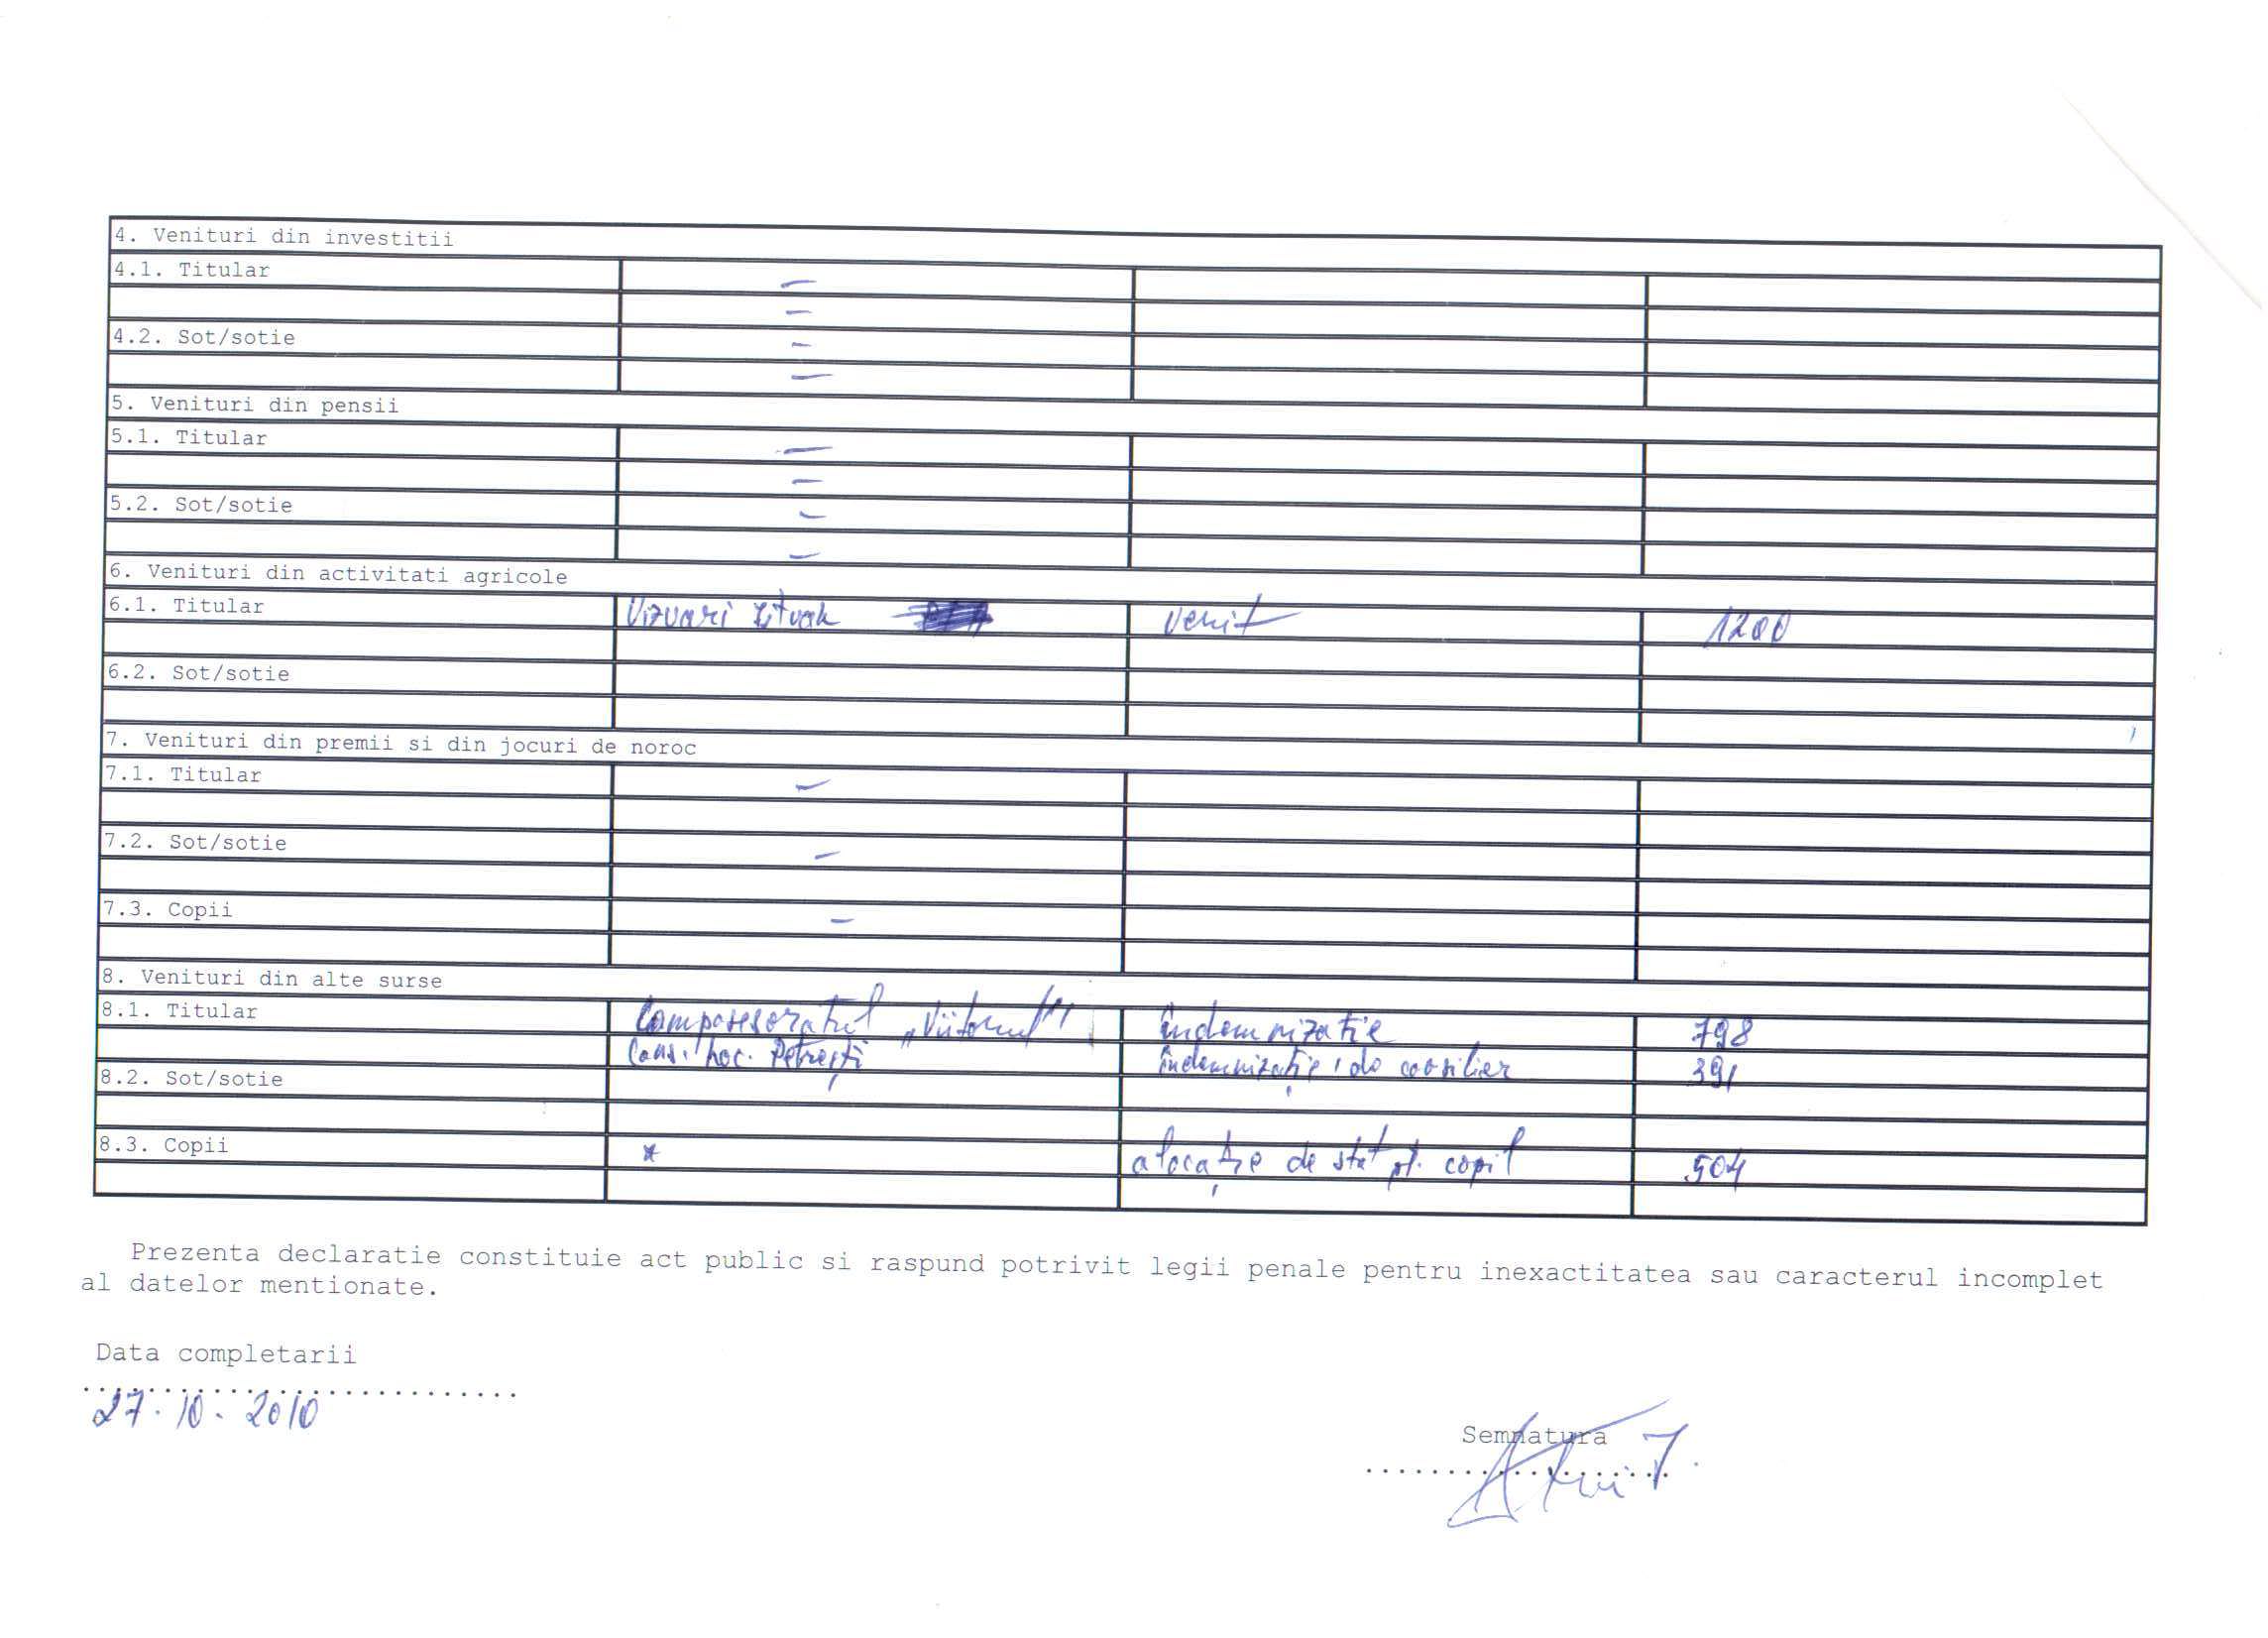 4. Venituri din investitii
4.1. Titular –
–
4.2. Sot/sotie –
–
5. Venituri din pensii
5.1. Titular –
–
5.2. Sot/sotie –
–
6. Venituri din activitati agricole
6.1. Titular Vizvari venit 1200
6.2. Sot/sotie
7. Venituri din premii si din jocuri de noroc
7.1. Titular –
7.2. Sot/sotie –
7.3. Copii –
8. Venituri din alte surse
8.1. Titular Composesoratul „Viitorul" îndemnizatie 798
Cons. Loc. Petrești îndemnizație de cosilier 391
8.2. Sot/sotie
8.3. Copii * alocație de stat pt. copil 504
Prezenta declaratie constituie act public si raspund potrivit legii penale pentru inexactitatea sau caracterul incomplet
al datelor mentionate.
Data completarii
..........................
27.10.2010
Semnatura
...................